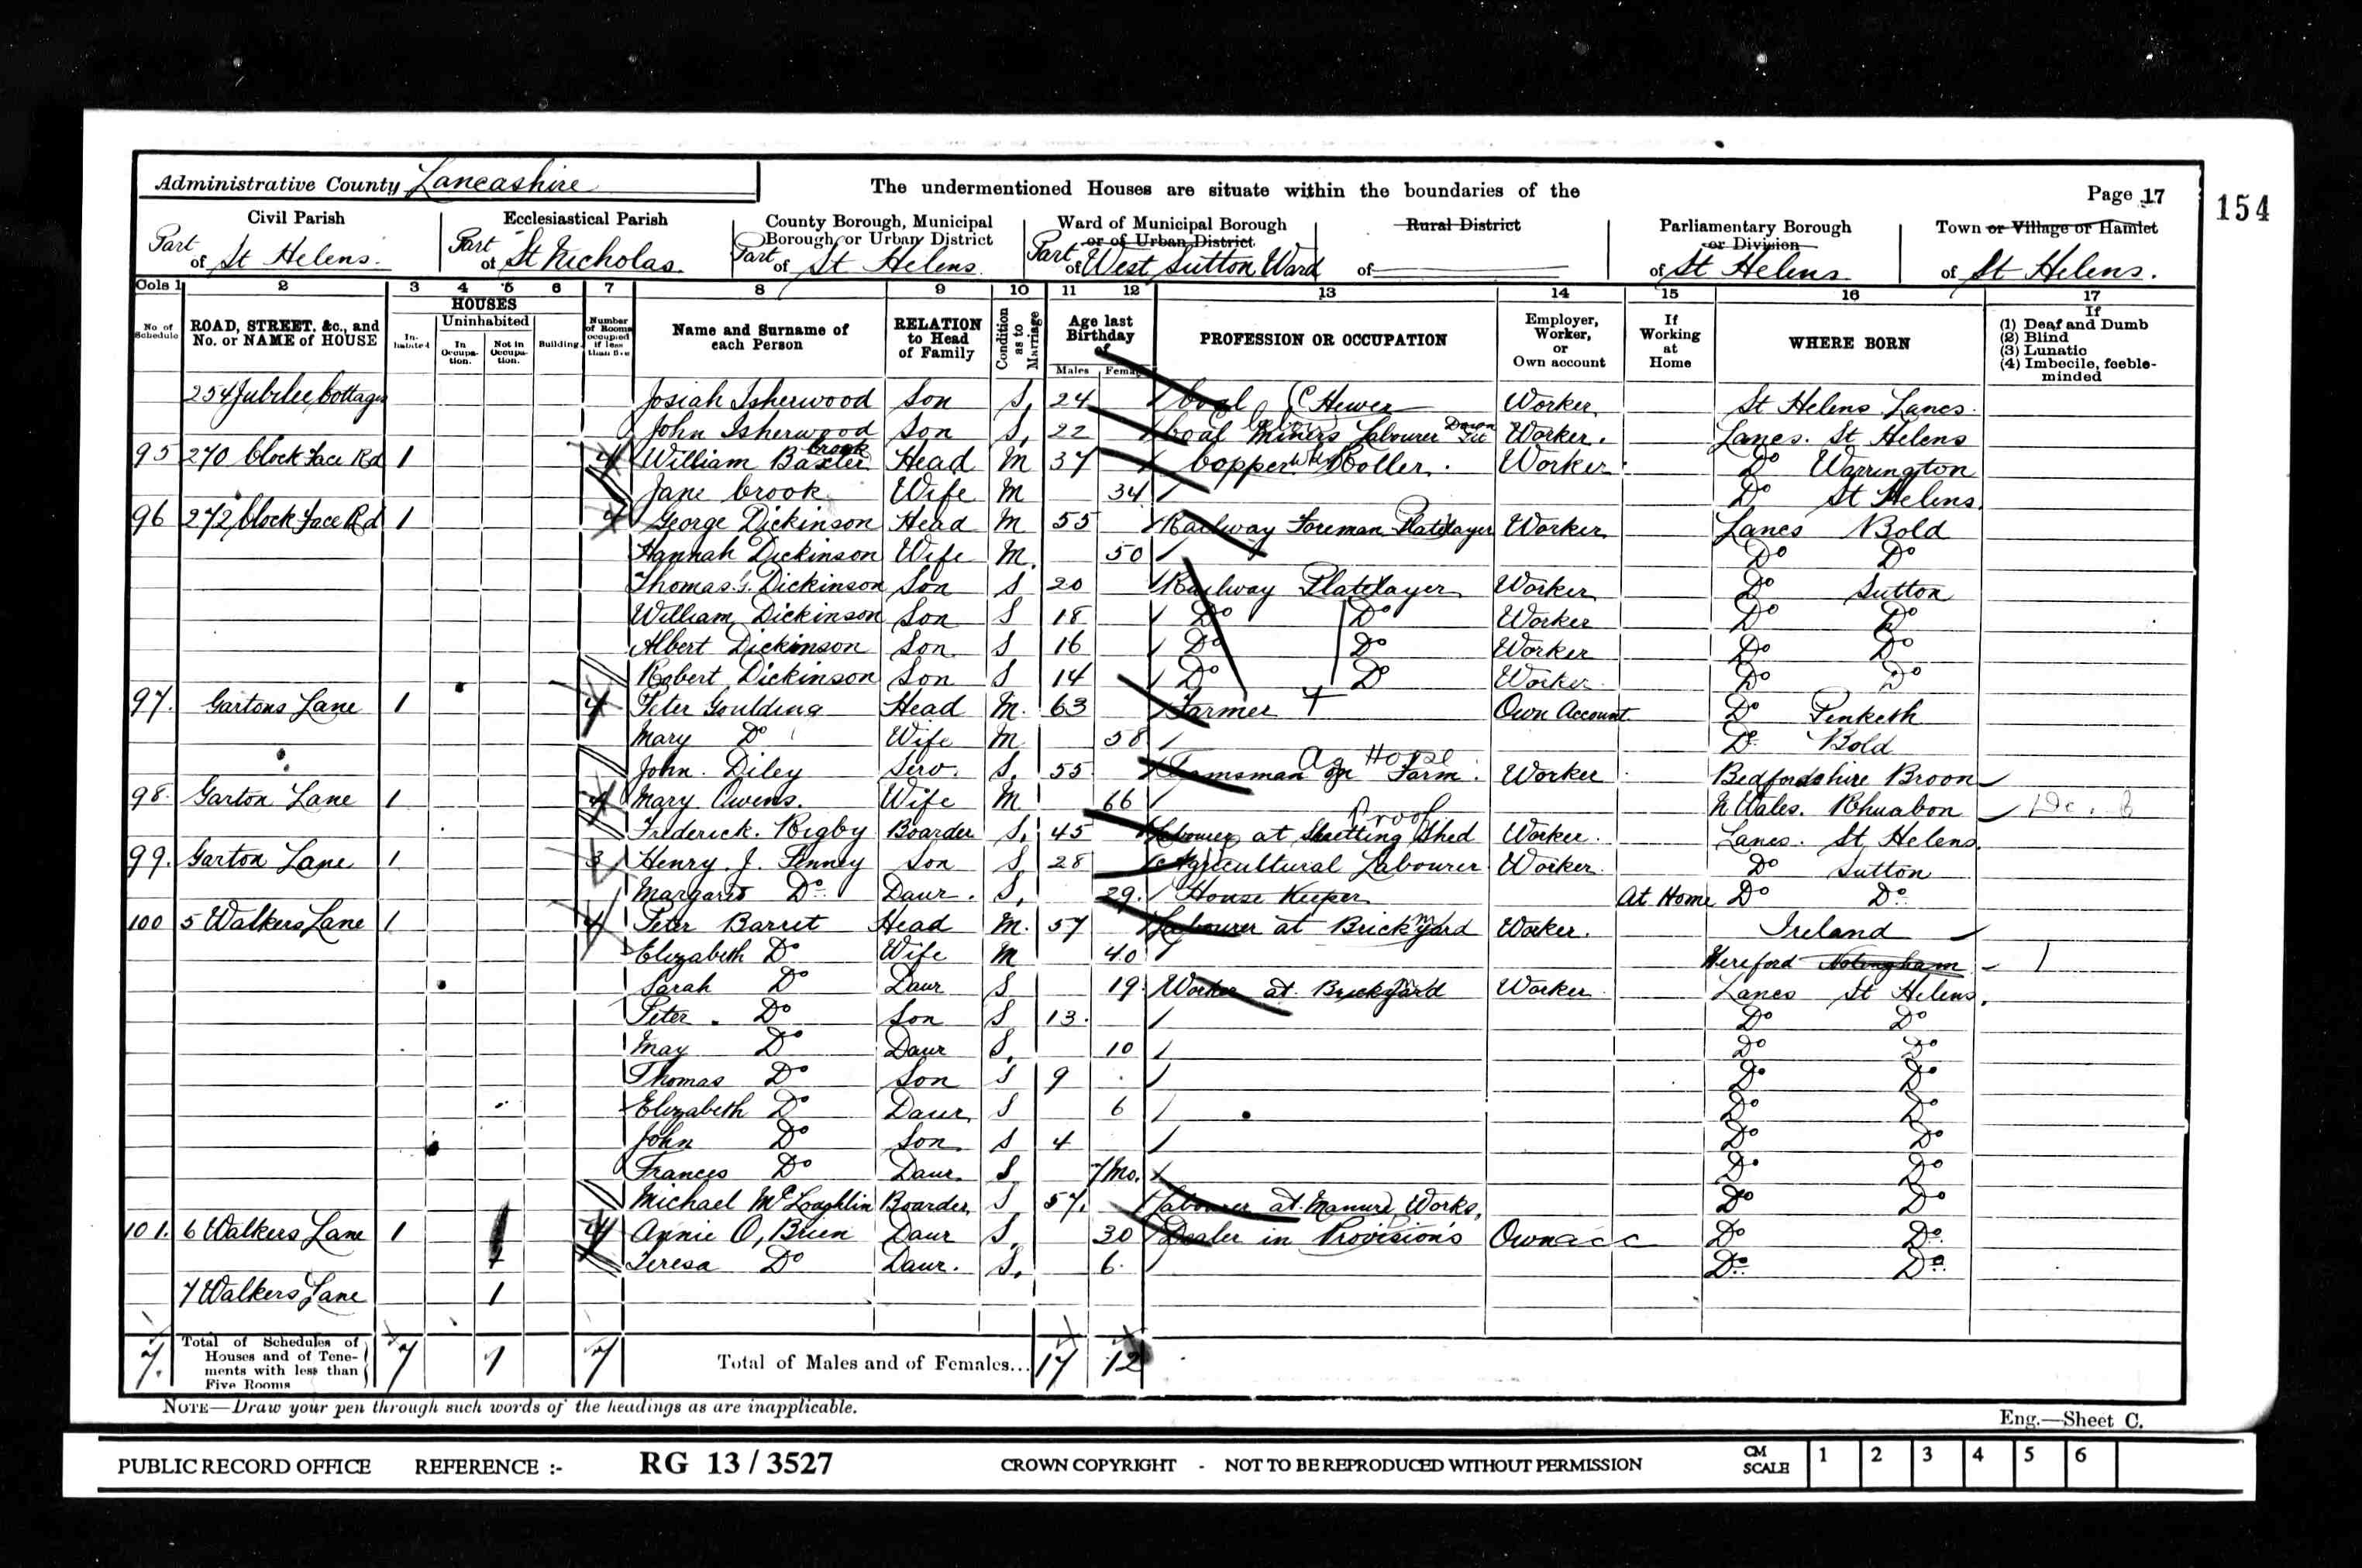 Administrative County Lancashire
The undermentioned Houses are situate within the boundaries of the
Page 17
154
Civil Parish
Part of St Helens.
Ecclesiastical Parish
Part of St Nicholas.
County Borough, Municipal Borough, or Urban District
Part of St Helens.
Ward of Municipal Borough or of Urban District
Part of West Sutton Ward
Rural District
of
Parliamentary Borough or Division
of St Helens
Town or Village or Hamlet
of St Helens.
Cols 1 2 3 4 5 6 7 8 9 10 11 12 13 14 15 16 17
No of Schedule
ROAD, STREET, &c., and No. or NAME of HOUSE
HOUSES
Inhabited
Uninhabited
In Occupation.
Not in Occupation.
Building
Number of Rooms occupied if less than five
Name and Surname of each Person
RELATION to Head of Family
Condition as to Marriage
Age last Birthday of
Males
Females
PROFESSION OR OCCUPATION
Employer, Worker, or Own account
If Working at Home
WHERE BORN
If
(1) Deaf and Dumb
(2) Blind
(3) Lunatic
(4) Imbecile, feeble-minded
254 Jubilee Cottages Josiah Isherwood Son S 24 Coal Hewer Worker St Helens Lancs.
John Isherwood Son S 22 Coal Miners Labourer Down Pit Worker. Lancs. St Helens
95 270 Clock Face Rd 1 4 William Baxter Crook Head M 37 Copper Wks Roller. Worker Do Warrington
Jane Crook Wife M 34 Do St Helens
96 272 Clock Face Rd 1 4 George Dickinson Head M 55 Railway Foreman Platelayer Worker Lancs Bold
Hannah Dickinson Wife M. 50 Do Do
Thomas G. Dickinson Son S 20 Railway Platelayer Worker Do Sutton
William Dickinson Son S 18 Do Do Worker Do Do
Albert Dickinson Son S 16 Do Do Worker Do Do
Robert Dickinson Son S 14 Do Do Worker Do Do
97. Gartons Lane 1 4 Peter Goulding Head M. 63 Farmer Own Account Do Penketh
Mary Do Wife M 58 Do Bold
John Diley Serv. S. 55 Farmsman on Farm. Ag Horse Worker Bedfordshire Broon
98. Garton Lane 1 4 Mary Owens. Wife M 66 N Wales. Rhuabon
Frederick. Rigby Boarder S. 45 Labourer at Shed Worker. Lancs. St Helens
99. Garton Lane 1 3 Henry. J. Finney Son S 28 Agricultural Labourer Worker Do Sutton
Margaret Do Daur. S. 29. House Keeper At Home Do Do
100 5 Walkers Lane 1 4 Peter Barret Head M. 57 Labourer at Brickyard Worker. Ireland
Elizabeth Do Wife M 40 Hereford Notingham
Sarah Do Daur S 19 Worker at Brickyard Worker Lancs St Helens.
Peter Do Son S 13. Do Do
May Do Daur S. 10 Do Do
Thomas Do Son S 9 Do Do
Elizabeth Do Daur S 6 Do Do
John Do Son S 4 Do Do
Frances Do Daur. S 7 Mo. Do Do
Michael McLoughlin Boarder S 57. Labourer at Manure Works. Do Do
101. 6 Walkers Lane 1 4 Annie O, Brien Daur S. 30 Dealer in Provisions Own acc Do Do
Teresa Do Daur. S. 6. Do Do
7 Walkers Lane 1
7. Total of Schedules of Houses and of Tenements with less than Five Rooms 7 1 7 Total of Males and of Females... 17 12
NOTE—Draw your pen through such words of the headings as are inapplicable.
Eng.—Sheet C.
PUBLIC RECORD OFFICE REFERENCE :- RG 13 / 3527 CROWN COPYRIGHT - NOT TO BE REPRODUCED WITHOUT PERMISSION CM SCALE 1 2 3 4 5 6